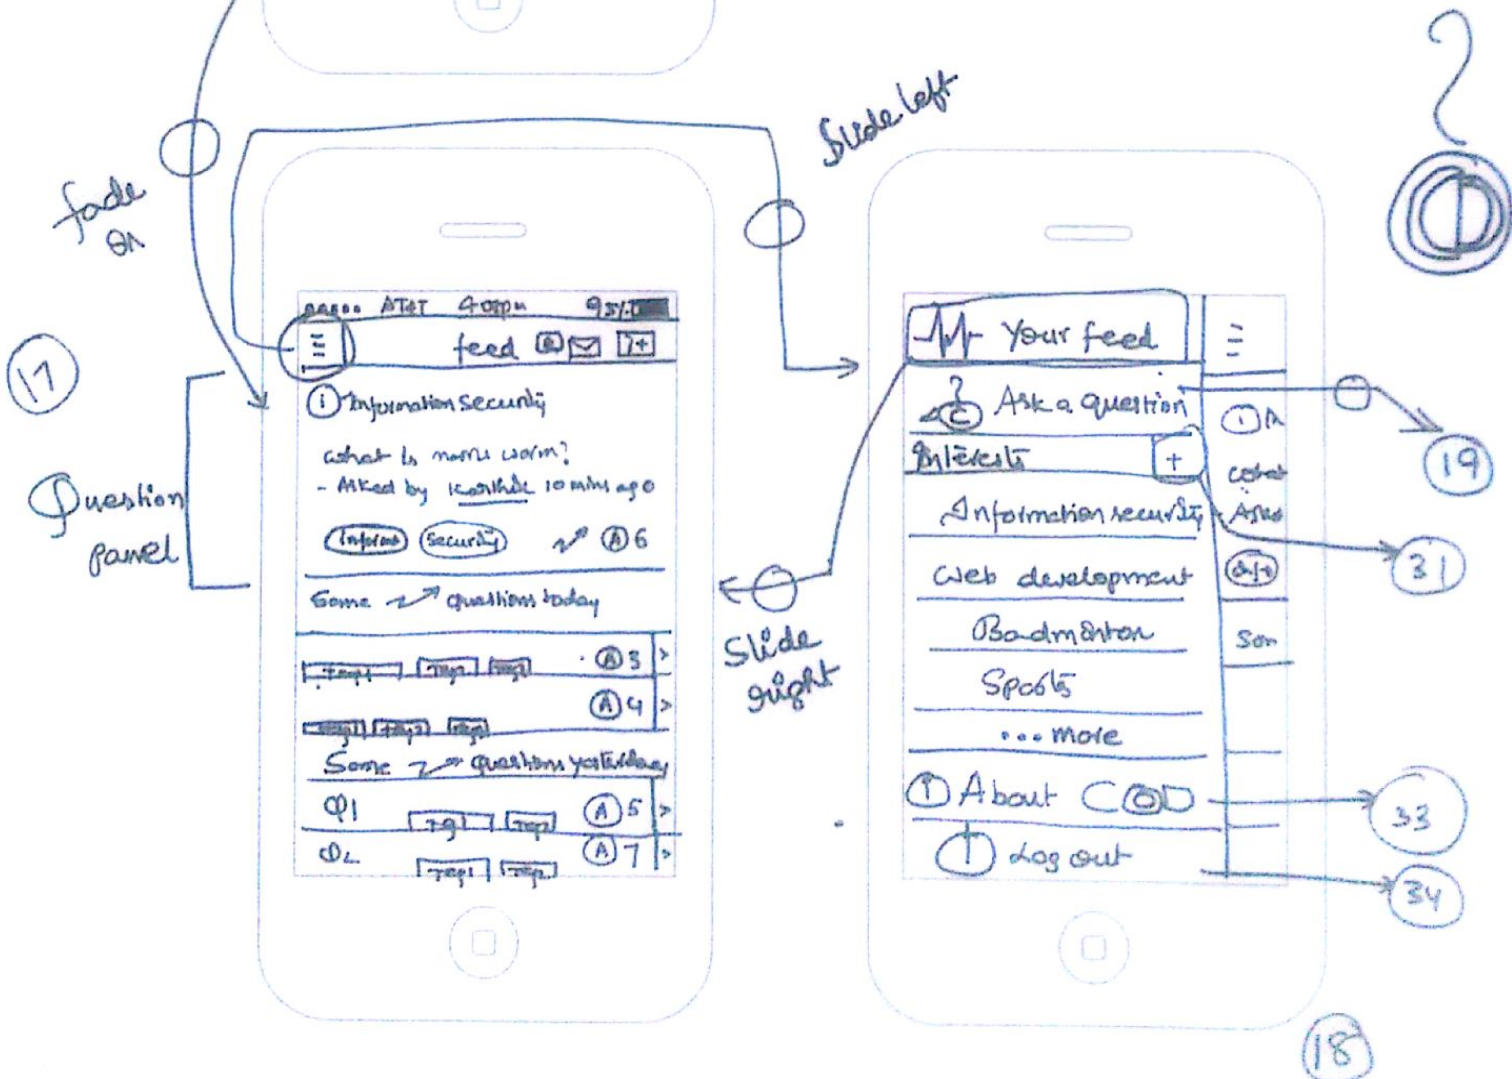 Slide left
fade
on
17
Question
panel
AT&T 4:00pm 95%
feed
i Information security
what is morris worm?
- Asked by Karthik 10 mins ago
Security A 6
Some questions today
Tag1 Tag2 Tag3 A 3 >
Tag1 Tag2 Tag3 A 4 >
Some questions yesterday
Q1 Tag1 Tag2 A 5 >
Q2 Tag1 Tag2 A 7 >
Slide
right
Your feed
Ask a question
19
Interests +
Information security
31
Web development
Badminton
Sports
... more
i About
33
Log out
34
i
What
Aske
Som
18